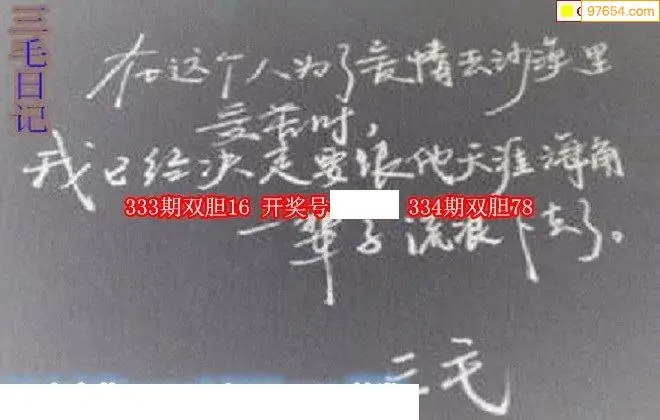 三毛日记
97654.com
在这个人为了爱情去沙漠里
受苦时,
我已经决定要跟他天涯海角
333期双胆16 开奖号 334期双胆78
一辈子流浪下去了。
三毛